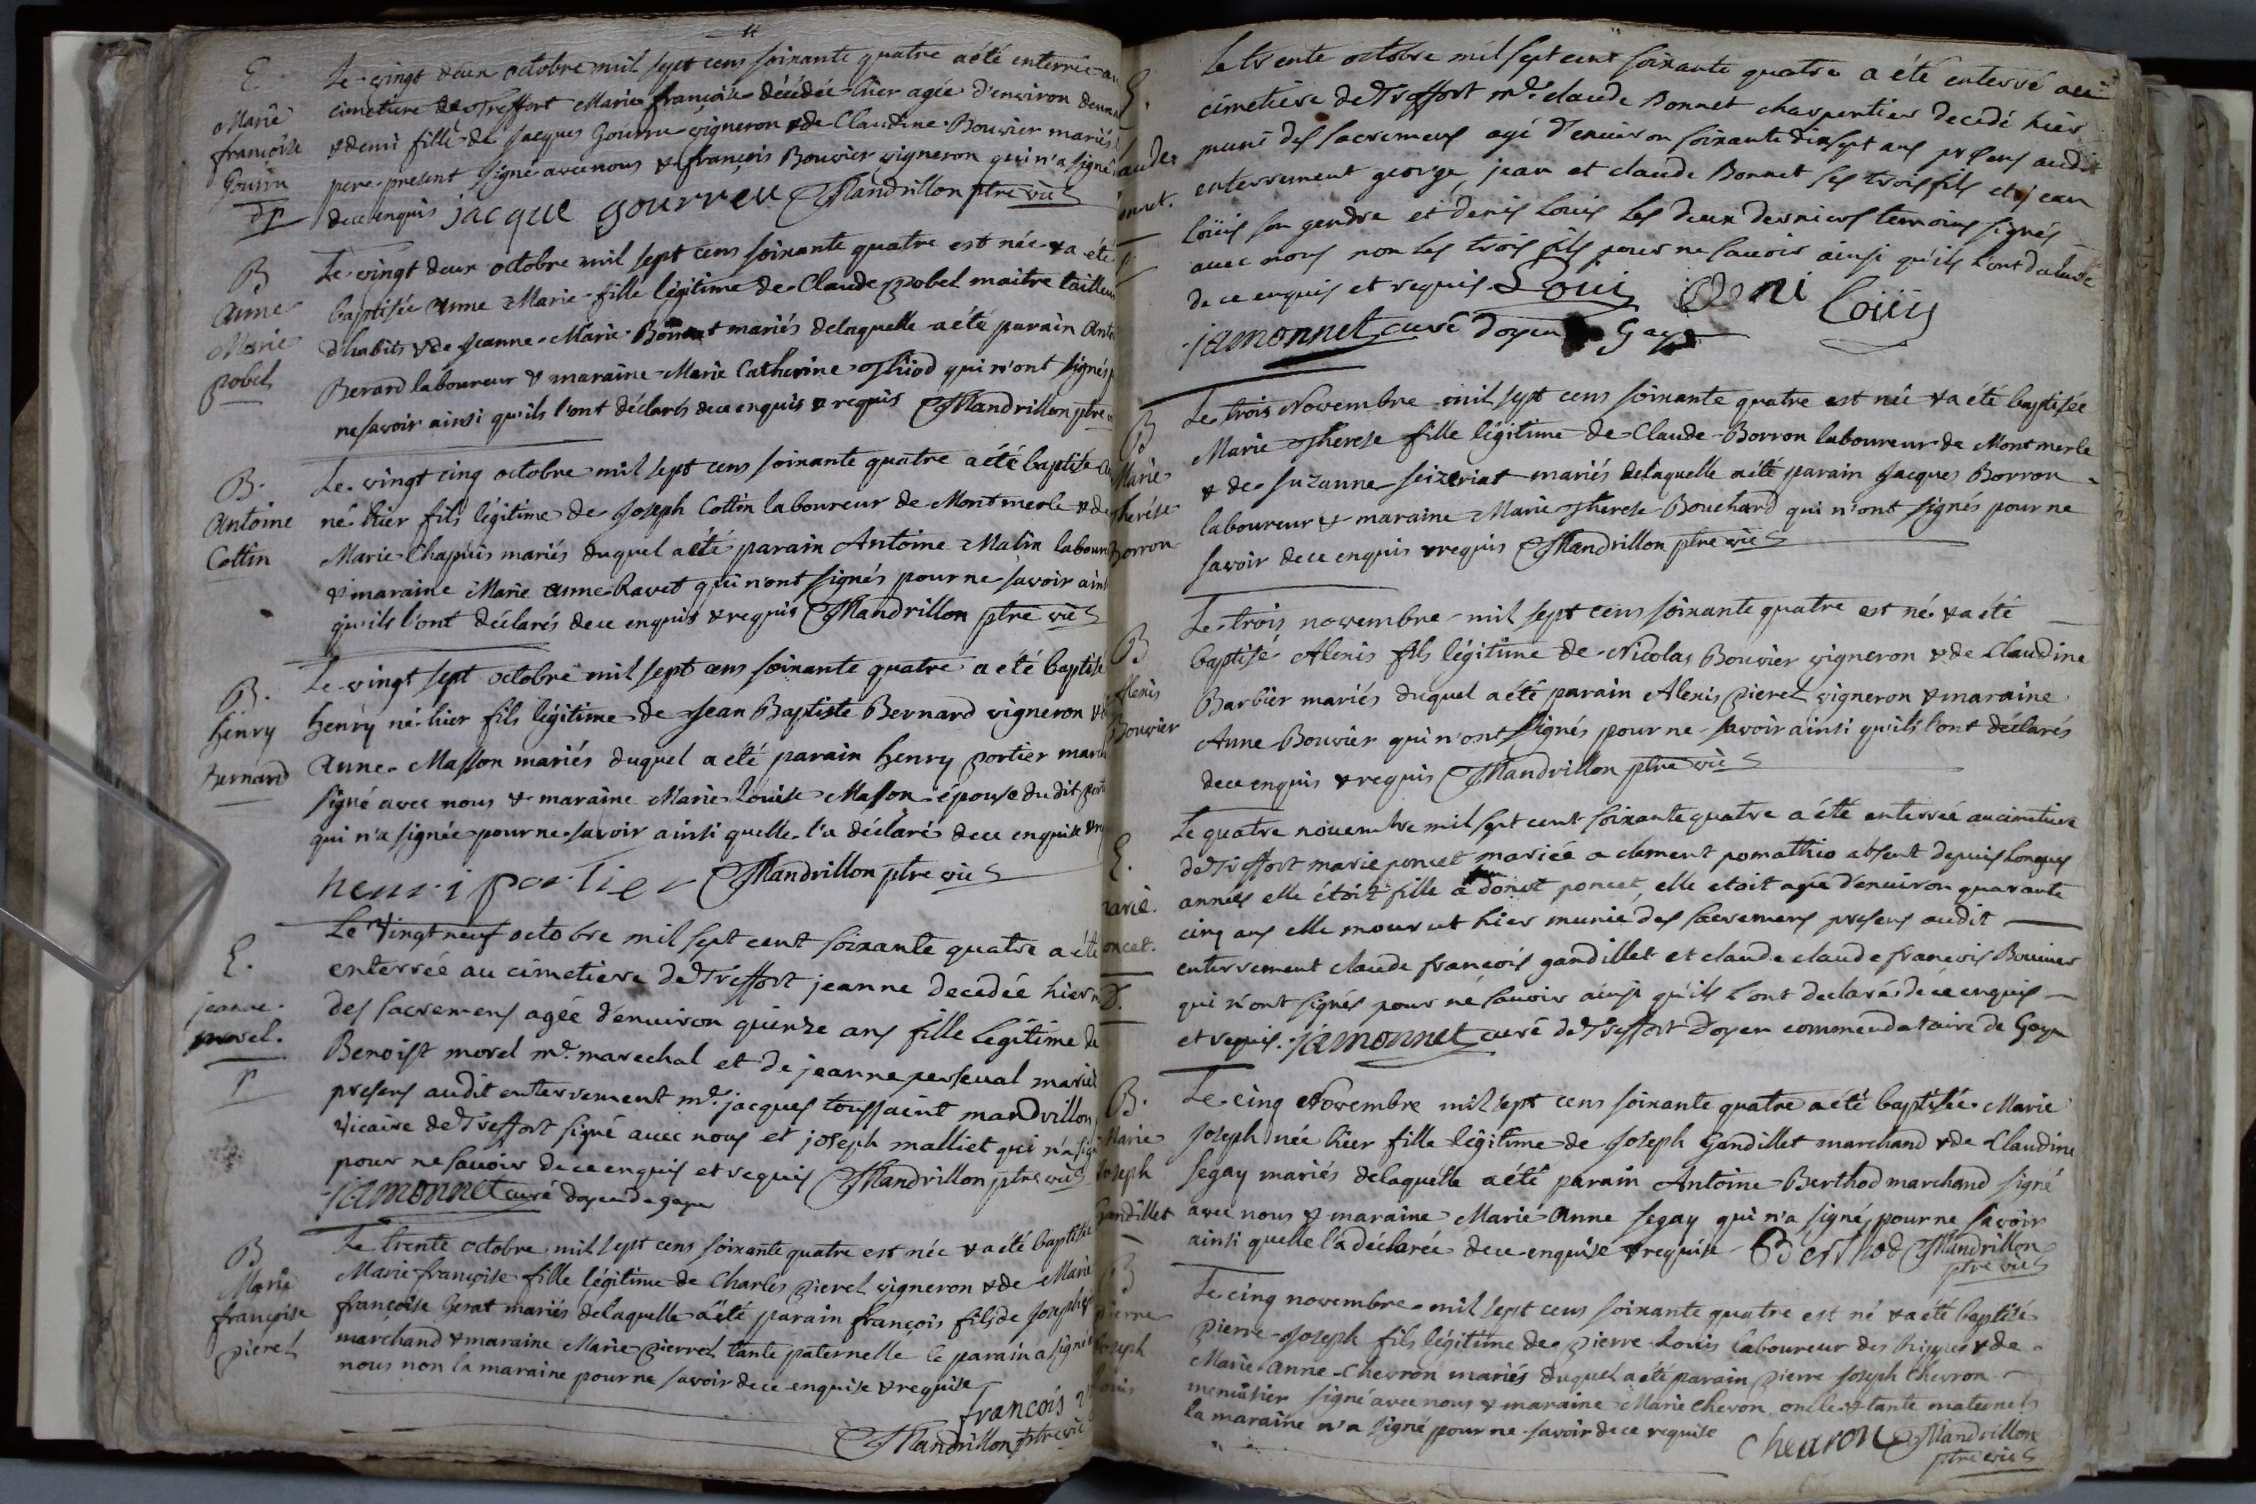 E
Marie
françoise
Gourru
Le vingt deux octobre mil sept cens soixante quatre a été enterrée au
cimetiere de Treffort Marie françoise décédée hier agée d'environ deux
& demi fille de Jacques Gourru vigneron & de Claudine Bouvier mariés
pere present signé avec nous & françois Bouvier vigneron qui n'a signé
de ce enquis jacque gourreu Mandrillon ptre vic
B
Anne
Marie
pobel
Le vingt deux octobre mil sept cens soixante quatre est née & a été
baptisée Anne Marie fille légitime de Claude pobel maitre tailleur
d'habits & de Jeanne Marie mariés delaquelle a été parain
Berard laboureur & maraine Marie Catherine Thiod qui n'ont signés
ne savoir ainsi qu'ils l'ont déclarés de ce enquis & requis Mandrillon ptre
B.
Antoine
Cottin
Le vingt cinq octobre mil sept cens soixante quatre a été baptisé
né hier fils légitime de Joseph Cottin laboureur de Montmerle & de
Marie Chapuis mariés duquel a été parain Antoine Matin
& maraine Marie Anne Ravet qui n'ont signés pour ne savoir
qu'ils l'ont déclarés de ce enquis & requis Mandrillon ptre vic
B.
henry
bernard
Le vingt sept octobre mil sept cens soixante quatre a été baptisé
henry né hier fils légitime de Jean Baptiste Bernard vigneron &
Anne Masson mariés duquel a été parain henry portier
signé avec nous & maraine Marie Louise Masson épouse du dit
qui n'a signée pour ne savoir ainsi quelle l'a déclaré de ce enquise
henri portier Mandrillon ptre vic
E.
jeanne
morel.
Le vingt neuf octobre mil sept cent soixante quatre a été
enterrée au cimetiere de Treffort jeanne decedée hier
des sacremens agée d'enuiron quinze ans fille legitime de
Benoist morel me. marechal et de jeanne perseval mariés
presens audit enterrement mre. jacques toussaint mandrillon
vicaire de Treffort signé auec nous et joseph malliet qui n'a
pour ne sauoir de ce enquis et requis Mandrillon ptre vic
jamonnet curé doyen de gaye
B
Marie
françoise
pierel
Le trente octobre mil sept cens soixante quatre est née & a été baptisée
Marie françoise fille légitime de Charles pierel vigneron & de Marie
françoise Gerat mariés delaquelle a été parain françois fils de Joseph
marchand & maraine Marie pierrel tante paternelle le parain a signé
nous non la maraine pour ne savoir de ce enquise & requise
françois
Mandrillon ptre vic
E.
Le trente octobre mil sept cent soixante quatre a été enterré au
cimetiere de Treffort me. claude Bonnet charpentier decedé hier
muni des sacremens agé d'enuiron soixante dix sept ans presens audit
enterrement george, jean et claude Bonnet ses trois fils et jean
loüis son gendre et denis louis les deux derniers temoins signés
auec nous non les trois fils pour ne sauoir ainsi qu'ils l'ont
de ce enquis et requis Loui Deni Loüis
jamonnet curé doyen Gaye
B
Marie
therése
Borron
Le trois Novembre mil sept cens soixante quatre est née & a été baptisée
Marie Therese fille légitime de Claude Borron laboureur de Montmerle
& de Suzanne seizeriat mariés delaquelle a été parain Jacques Borron
laboureur & maraine Marie Therese Bouchard qui n'ont signés pour ne
savoir de ce enquis & requis Mandrillon ptre vic
B
Alexis
Bouvier
Le trois novembre mil sept cens soixante quatre est né & a été
baptisé Alexis fils légitime de Nicolas Bouvier vigneron & de Claudine
Barbier mariés duquel a été parain Alexis pierel vigneron & maraine
Anne Bouvier qui n'ont signés pour ne savoir ainsi qu'ils l'ont déclarés
de ce enquis & requis Mandrillon ptre vic
E.
marie.
oncet.
Le quatre nouembre mil sept cent soixante quatre a été enterrée au cimetiere
de Treffort marie poncet mariée a clement pomathio absent depuis longues
années elle étoit fille a donat poncet, elle etoit agée d'enuiron quarante
cinq ans elle mourut hier munie des sacremens presens audit
enterrement claude françois gandillet et claude claude françois Bouuier
qui n'ont signés pour ne sauoir ainsi qu'ils l'ont declarés de ce enquis
et requis. jamonnet curé de Treffort doyen commendataire de Gaye
B.
Marie
Joseph
Gandillet
Le cinq Novembre mil sept cens soixante quatre a été baptisée Marie
Joseph née hier fille légitime de Joseph Gandillet marchand & de Claudine
Segay mariés delaquelle a été parain Antoine Berthod marchand signé
avec nous & maraine Marie Anne Segay qui n'a signé pour ne savoir
ainsi quelle l'a déclarée de ce enquise & requise Berthod Mandrillon
ptre vic
B
pierre
Joseph
Louis
Le cinq novembre mil sept cens soixante quatre est né & a été baptisé
pierre Joseph fils légitime de pierre Louis laboureur des & de
Marie Anne Chevron mariés duquel a été parain pierre Joseph Chevron
menuisier signé avec nous & maraine Marie Chevron oncle & tante maternels
la maraine n'a signé pour ne savoir de ce requise Cheuron Mandrillon
ptre vic